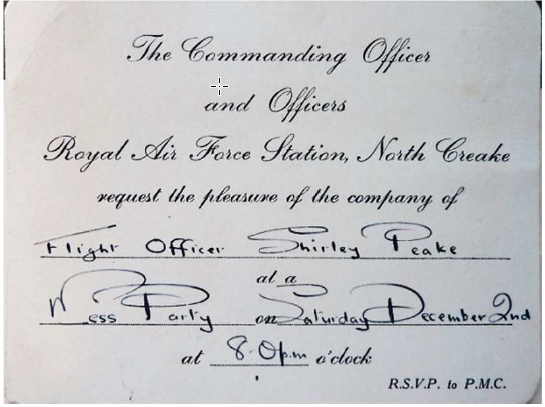 The Commanding Officer
and Officers
Royal Air Force Station, North Creake
request the pleasure of the company of
Flight Officer Shirley Peake
at a
Mess Party on Saturday December 2nd
at 8-0p.m o'clock
R.S.V.P. to P.M.C.